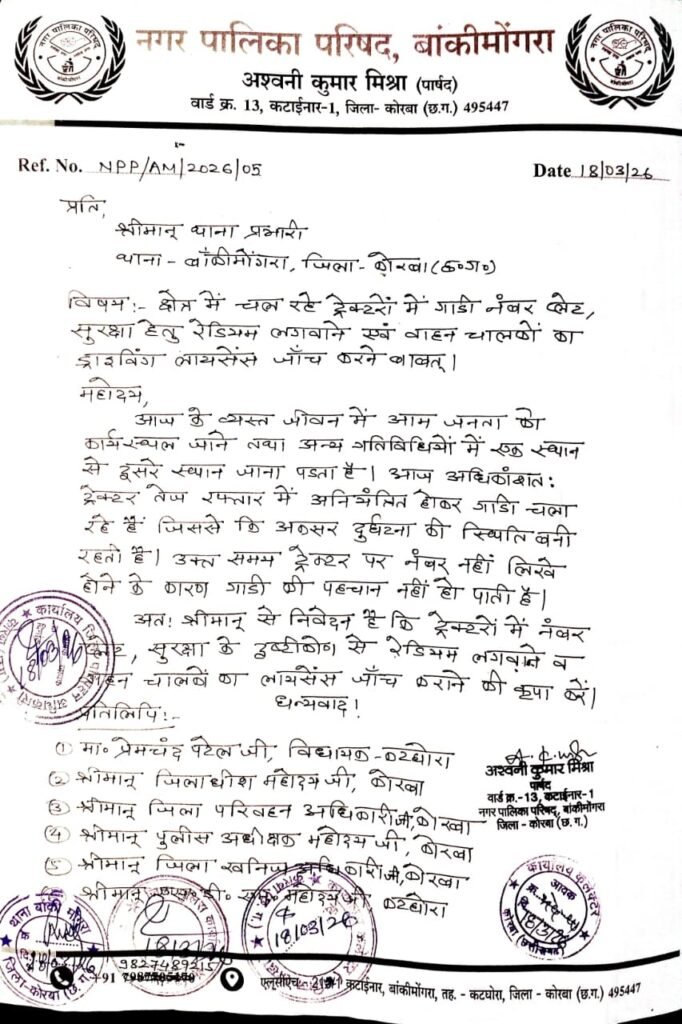 नगर पालिका परिषद, बांकीमोंगरा
अश्वनी कुमार मिश्रा (पार्षद)
वार्ड क्र. 13, कटाईनार-1, जिला- कोरबा (छ.ग.) 495447
Ref. No. NPP/AM/2026/05
Date 18/03/26
प्रति,
श्रीमान् थाना प्रभारी
थाना - बाँकीमोंगरा, जिला - कोरबा (छ०ग०)
विषय:- क्षेत्र में चल रहे ट्रेक्टरों में गाडी नंबर प्लेट,
सुरक्षा हेतु रेडियम लगवाने एवं वाहन चालकों का
ड्राइविंग लायसेंस जाँच करने बाबत्।
महोदय,
आज के व्यस्त जीवन में आम जनता को
कार्यस्थल जाने तथा अन्य गतिविधियों में एक स्थान
से दूसरे स्थान जाना पडता है। आज अधिकांशतः
ट्रेक्टर तेज रफ्तार में अनियंत्रित होकर गाडी चला
रहे हैं जिससे कि अकसर दुर्घटना की स्थिति बनी
रहती है। उक्त समय ट्रेक्टर पर नंबर नहीं लिखे
होने के कारण गाडी की पहचान नहीं हो पाती है।
अतः श्रीमान् से निवेदन है कि ट्रेक्टरों में नंबर
प्लेट, सुरक्षा के दृष्टीकोण से रेडियम लगवाने व
वाहन चालकों का लायसेंस जाँच कराने की कृपा करें।
धन्यवाद!
प्रतिलिपि:-
① मा० प्रेमचंद पटेल जी, विधायक - कटघोरा
② श्रीमान् जिलाधीश महोदय जी, कोरबा
③ श्रीमान् जिला परिवहन अधिकारी जी, कोरबा
④ श्रीमान् पुलीस अधीक्षक महोदय जी, कोरबा
⑤ श्रीमान् जिला खनिज अधिकारी जी, कोरबा
श्रीमान् एस. डी. महोदय जी कटघोरा
अश्वनी कुमार मिश्रा
पार्षद
वार्ड क्र.-13, कटाईनार-1
नगर पालिका परिषद, बांकीमोंगरा
जिला - कोरबा (छ. ग.)
कार्यालय कलेक्टर
आवक
18/3/26
कोरबा (छत्तीसगढ़)
18/03/26
9827489215
+91
कटाईनार, बांकीमोंगरा, तह. - कटघोरा, जिला - कोरबा (छ.ग.) 495447